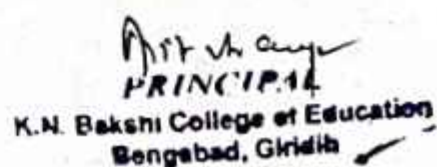 PRINCIPAL
K.N. Bakshi College of Education
Bengabad, Giridih